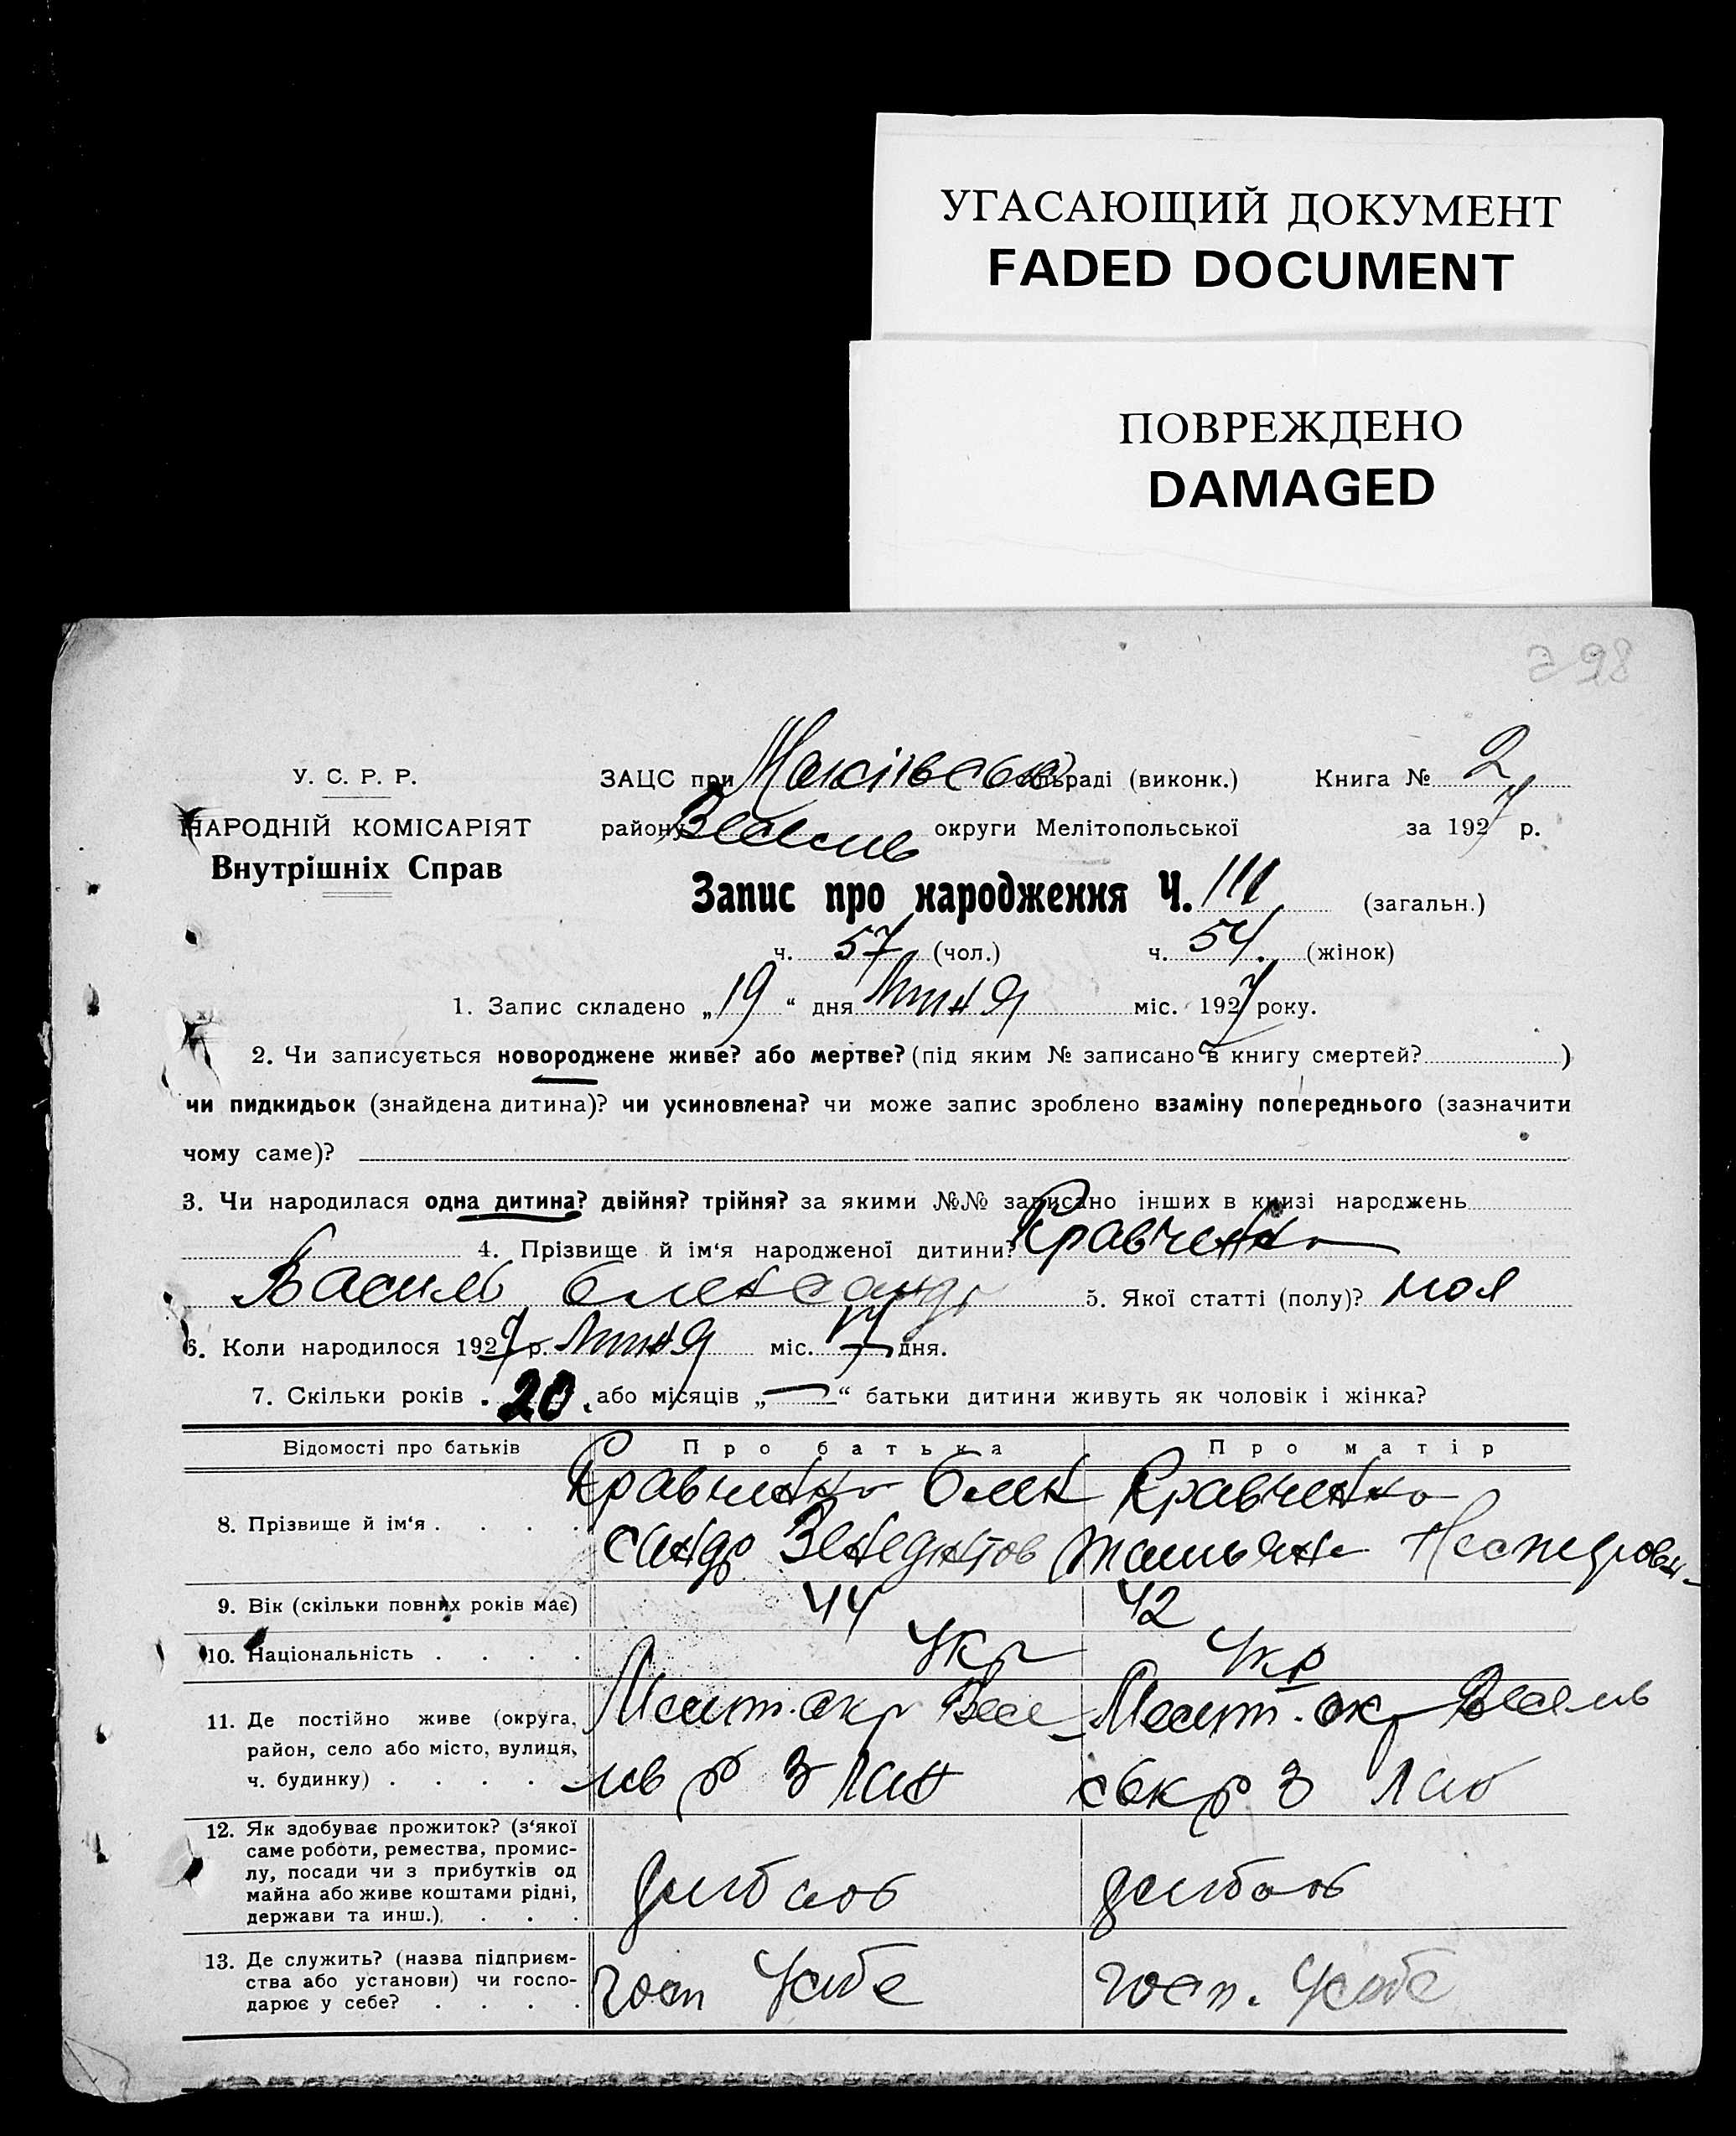 УГАСАЮЩИЙ ДОКУМЕНТ
FADED DOCUMENT
ПОВРЕЖДЕНО
DAMAGED
398
У. С. Р. Р.
НАРОДНІЙ КОМІСАРІЯТ
Внутрішніх Справ
ЗАЦС при сільраді (виконк.) Книга № 2
району Весель округи Мелітопольської за 1927 р.
Запис про народження Ч. 111 (загальн.)
ч. 57 (чол.) ч. 54 (жінок)
1. Запис складено „19“ дня Липня міс. 1927 року.
2. Чи записується новороджене живе? або мертве? (під яким № записано в книгу смертей? )
чи пидкидьок (знайдена дитина)? чи усиновлена? чи може запис зроблено взаміну попереднього (зазначити
чому саме)?
3. Чи народилася одна дитина? двійня? трійня? за якими №№ записано інших в книзі народжень
4. Прізвище й ім‘я народженої дитини? Кравченко
Василь Олександр 5. Якої статті (полу)?
6. Коли народилося 1927 р. Липня міс. дня.
7. Скільки років 20 або місяців „—“ батьки дитини живуть як чоловік і жінка?
Відомості про батьків Про батька Про матір
8. Прізвище й ім‘я . . . . Кравченко Олек Кравченко
сандр Венедиктов
9. Вік (скільки повних років має) 44 42
10. Національність . . . . Укр Укр
11. Де постійно живе (округа, Меліт. окр Весе Меліт. ок Весель
район, село або місто, вулиця, ль р ськ р
ч. будинку) . . . .
12. Як здобуває прожиток? (з‘якої
саме роботи, ремества, промис-
лу, посади чи з прибутків од
майна або живе коштами рідні,
держави та инш.). . . . хлібороб хлібороб
13. Де служить? (назва підприєм-
ства або установи) чи госпо-
дарює у себе? . . . . госп У себе госп. У себе